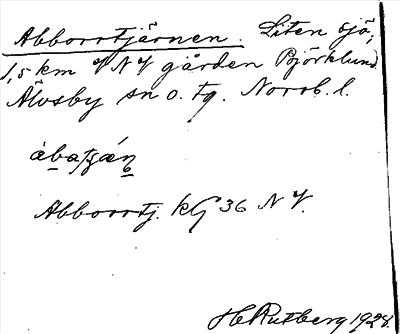 Abborrtjärnen. Liten sjö,
1,5 km V N V gården Björklund.
Älvsby sn o. tg. Norrb. l.
Abborrtj. kG 36 N V.
H Rutberg 1928.